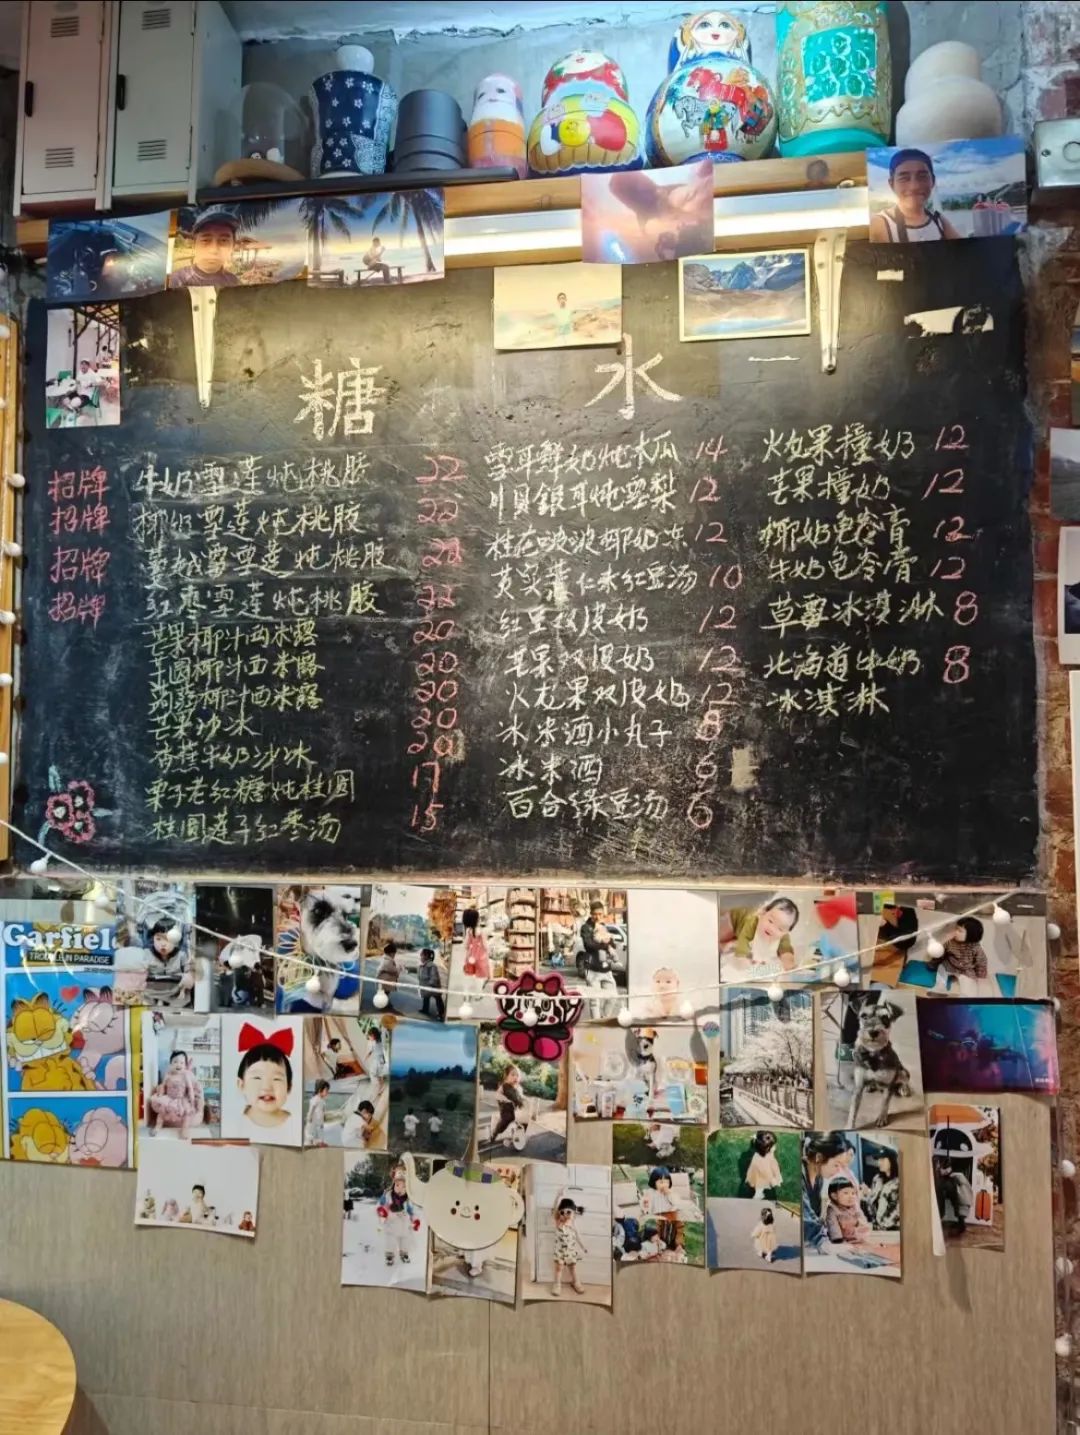 糖水
招牌 牛奶雪莲炖桃胶 22
招牌 椰奶雪莲炖桃胶 22
招牌 蔓越莓雪莲炖桃胶 22
招牌 红枣雪莲炖桃胶 22
芒果椰汁西米露 20
芋圆椰汁西米露 20
蒟蒻椰汁西米露 20
芒果沙冰 20
香蕉牛奶沙冰 20
栗子老红糖炖桂圆 17
桂圆莲子红枣汤 15
雪耳鲜奶炖木瓜 14
川贝銀耳炖雪梨 12
桂花啵啵椰奶冻 12
芡实薏仁米红豆汤 10
红豆双皮奶 12
芒果双皮奶 12
火龙果双皮奶 12
冰米酒小丸子 8
冰米酒 6
百合绿豆汤 6
火龙果撞奶 12
芒果撞奶 12
椰奶龟苓膏 12
牛奶龟苓膏 12
草莓冰淇淋 8
北海道牛奶 8
冰淇淋
Garfield
TROUBLE IN PARADISE